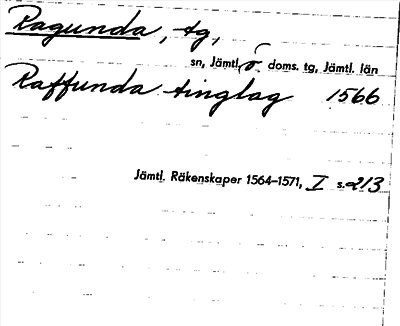 Ragunda, tg,
sn, Jämtl. ö. doms. tg, Jämtl. län
Raffunda tinglag 1566
Jämtl. Räkenskaper 1564–1571, I s. 213